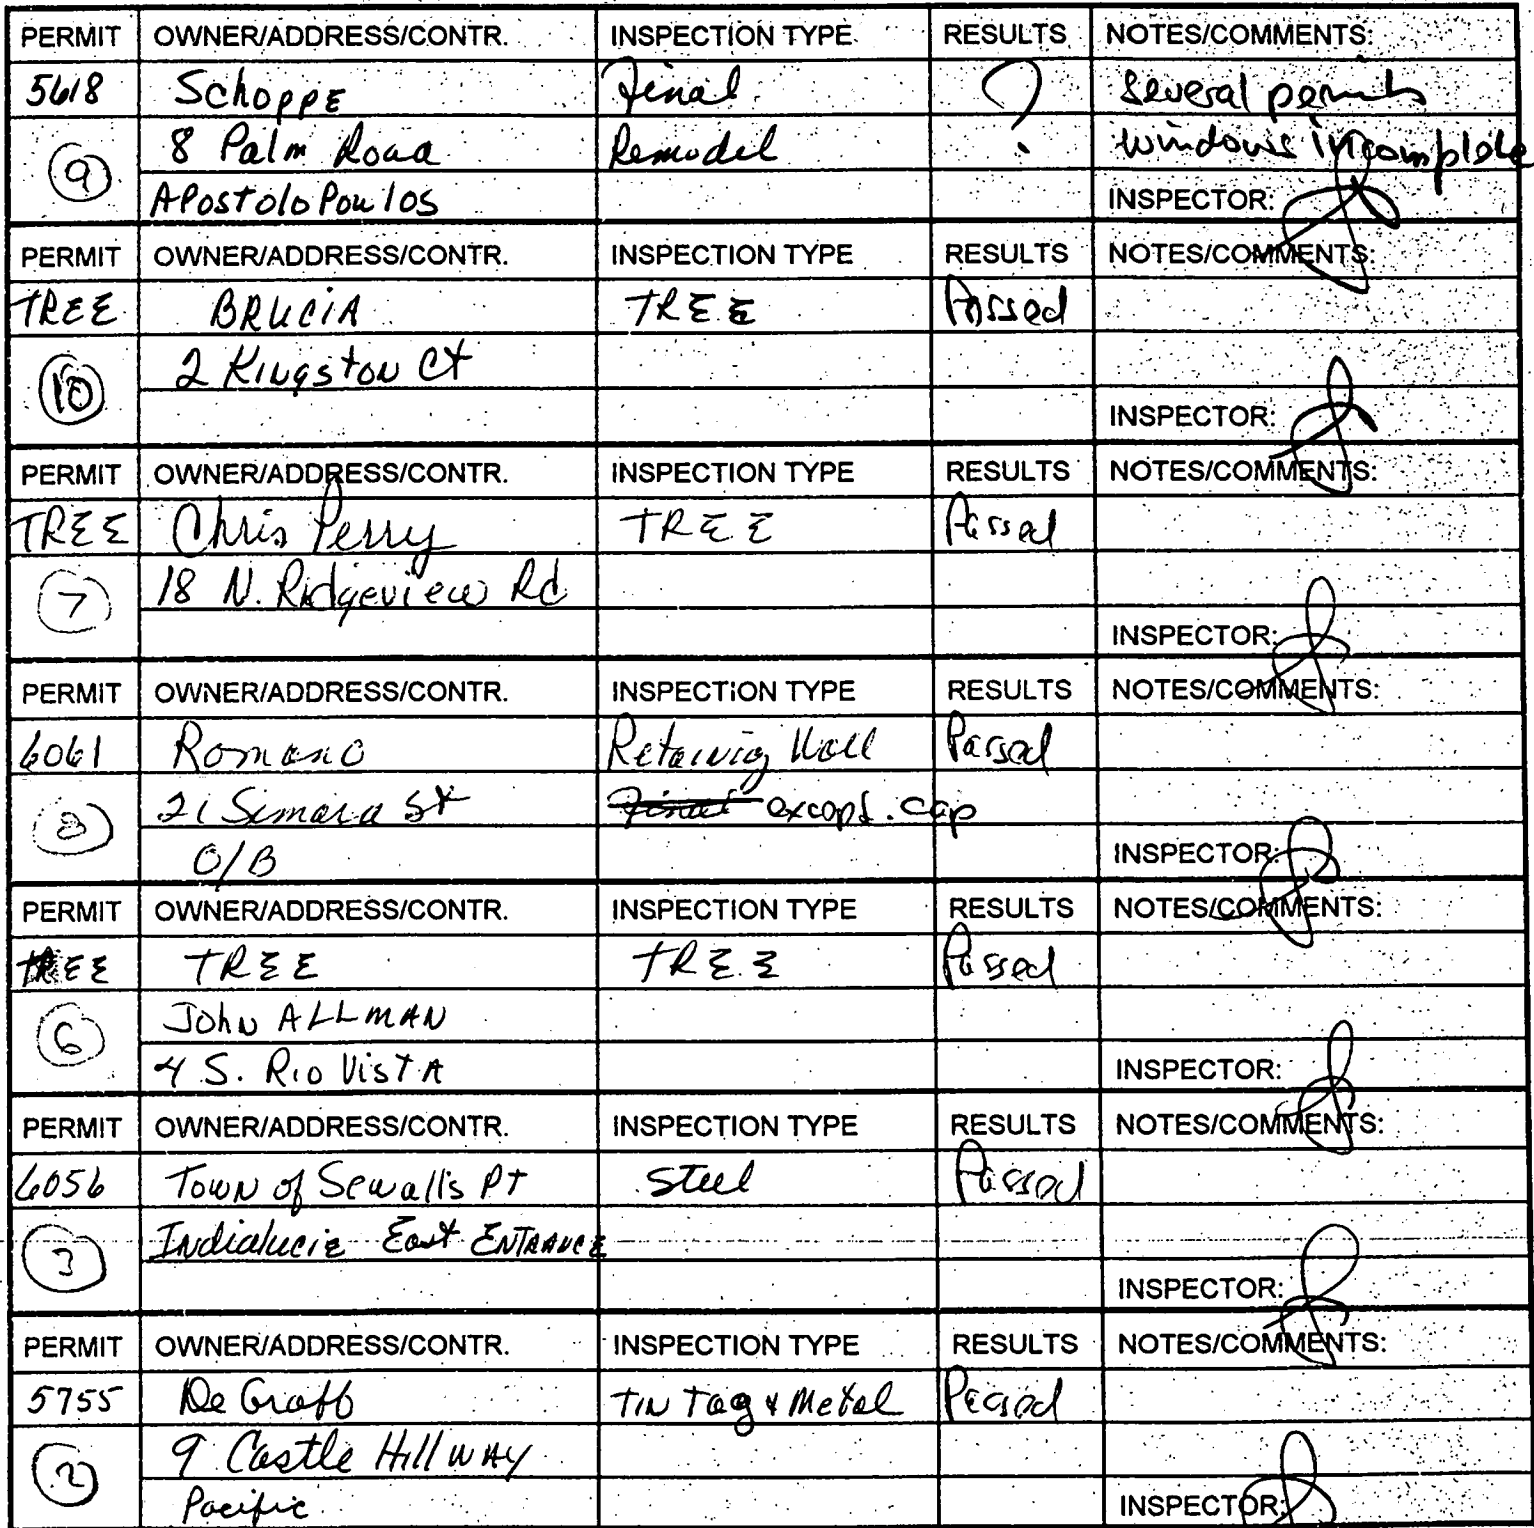 PERMIT OWNER/ADDRESS/CONTR. INSPECTION TYPE RESULTS NOTES/COMMENTS:
5618 Schoppe Final ? Several permits
9 8 Palm Road Remodel windows incomplete
Apostolopoulos INSPECTOR:
PERMIT OWNER/ADDRESS/CONTR. INSPECTION TYPE RESULTS NOTES/COMMENTS:
TREE BRUCIA TREE Passed
10 2 Kingston Ct
INSPECTOR:
PERMIT OWNER/ADDRESS/CONTR. INSPECTION TYPE RESULTS NOTES/COMMENTS:
TREE Chris Perry TREE Passed
7 18 N. Ridgeview Rd
INSPECTOR:
PERMIT OWNER/ADDRESS/CONTR. INSPECTION TYPE RESULTS NOTES/COMMENTS:
6061 Romano Retaining Wall Passed
8 21 Simara St Final except. cap
O/B INSPECTOR:
PERMIT OWNER/ADDRESS/CONTR. INSPECTION TYPE RESULTS NOTES/COMMENTS:
TREE TREE TREE Passed
6 John ALLMAN
4 S. Rio Vista INSPECTOR:
PERMIT OWNER/ADDRESS/CONTR. INSPECTION TYPE RESULTS NOTES/COMMENTS:
6056 Town of Sewall's Pt Steel Passed
3 Indialucie East ENTRANCE
INSPECTOR:
PERMIT OWNER/ADDRESS/CONTR. INSPECTION TYPE RESULTS NOTES/COMMENTS:
5755 De Graff Tin Tag & Metal Passed
2 9 Castle Hill WAY
Pacific INSPECTOR: